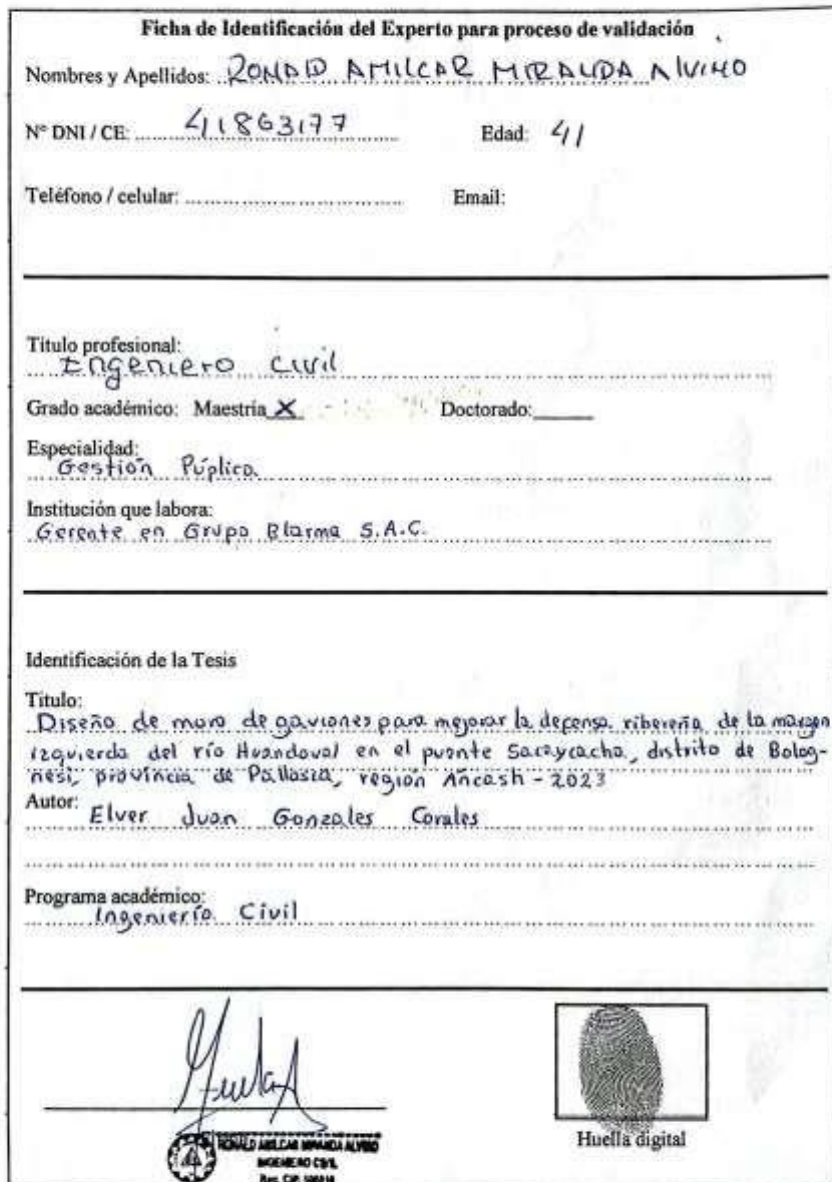 Ficha de Identificación del Experto para proceso de validación
Nombres y Apellidos: RONALD AMILCAR MIRANDA AlVINO
N° DNI / CE: 41863177 Edad: 41
Teléfono / celular: Email:
Título profesional:
Ingeniero Civil
Grado académico: Maestría X Doctorado:
Especialidad:
Gestión Púplica
Institución que labora:
Gerente en Grupo Blarma S.A.C.
Identificación de la Tesis
Título:
Diseño de muro de gaviones para mejorar la defensa ribereña de la margen
izquierda del río Huandoval en el puente Saraycacha, distrito de Bolog-
nesi, província de Pallasca, región Ancash - 2023
Autor: Elver Juan Gonzales Corales
Programa académico:
Ingeniería Civil
RONALD AMILCAR MIRANDA ALVINO
INGENIERO CIVIL
Reg. CIP
Huella digital